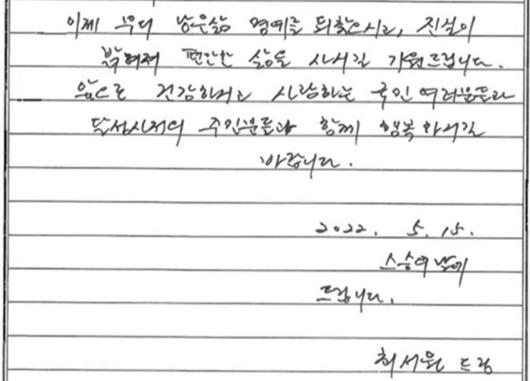 이제 부디 남은삶 명예를 되찾으시고, 진실이
밝혀져 편안한 삶을 사시길 기원드립니다.
앞으로 건강하시고 사랑하는 국민 여러분들과
달성사저의 주민분들과 함께 행복하시길
바랍니다.
2022. 5. 15.
스승의 날에
드립니다.
최서원 드림